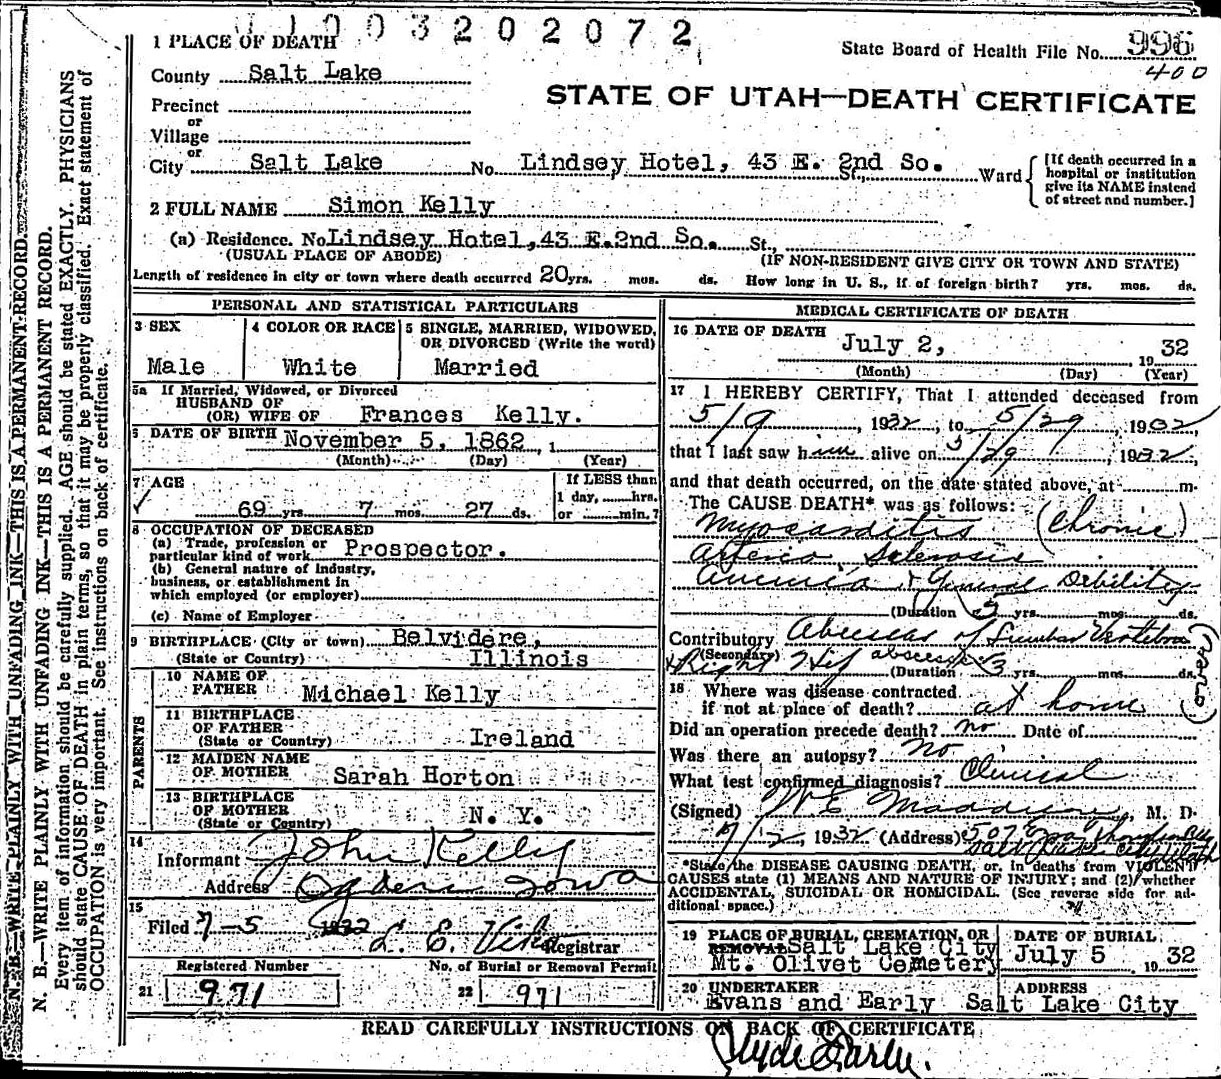 1003202072
1 PLACE OF DEATH
State Board of Health File No. 996
400
County Salt Lake
STATE OF UTAH—DEATH CERTIFICATE
Precinct
or
Village
or
City Salt Lake No. Lindsey Hotel, 43 E. 2nd So. St., Ward
[If death occurred in a hospital or institution give its NAME instead of street and number.]
2 FULL NAME Simon Kelly
(a) Residence. No. Lindsey Hotel, 43 E. 2nd So. St.,
(USUAL PLACE OF ABODE) (IF NON-RESIDENT GIVE CITY OR TOWN AND STATE)
Length of residence in city or town where death occurred 20 yrs. mos. ds. How long in U. S., if of foreign birth? yrs. mos. ds.
PERSONAL AND STATISTICAL PARTICULARS
3 SEX
Male
4 COLOR OR RACE
White
5 SINGLE, MARRIED, WIDOWED,
OR DIVORCED (Write the word)
Married
5a If Married, Widowed, or Divorced
HUSBAND OF
(OR) WIFE OF Frances Kelly.
6 DATE OF BIRTH November 5, 1862, 1
(Month) (Day) (Year)
7 AGE
69 yrs 7 mos. 27 ds.
If LESS than
1 day, hrs.
or min.?
8 OCCUPATION OF DECEASED
(a) Trade, profession or
particular kind of work Prospector.
(b) General nature of industry,
business, or establishment in
which employed (or employer)
(c) Name of Employer
9 BIRTHPLACE (City or town) Belvidere,
(State or Country) Illinois
PARENTS
10 NAME OF
FATHER Michael Kelly
11 BIRTHPLACE
OF FATHER
(State or Country) Ireland
12 MAIDEN NAME
OF MOTHER Sarah Horton
13 BIRTHPLACE
OF MOTHER
(State or Country) N. Y.
14
Informant John Kelly
Address Ogden Iowa
15
Filed 7-5 1932 L. E. Viko Registrar
Registered Number
21 971
No. of Burial or Removal Permit
22 971
MEDICAL CERTIFICATE OF DEATH
16 DATE OF DEATH July 2, 1932
(Month) (Day) (Year)
17 I HEREBY CERTIFY, That I attended deceased from
5/9, 1932, to 5/29, 1932,
that I last saw him alive on 5/29, 1932,
and that death occurred, on the date stated above, at m.
The CAUSE DEATH* was as follows:
Myocarditis (Chronic)
Arterio Sclerosis
Anemia & General Debility
(Duration 5 yrs. mos. ds.
Contributory Abscess of Lumbar Vertebra
(Secondary) & Right Hip abscess (Duration 3 yrs. mos. ds.
(over)
18 Where was disease contracted
if not at place of death? at home
Did an operation precede death? no Date of
Was there an autopsy? No
What test confirmed diagnosis? Clinical
(Signed) W E M. D.
7/2 1932 (Address) 507
*State the DISEASE CAUSING DEATH, or, in deaths from VIOLENT
CAUSES state (1) MEANS AND NATURE OF INJURY; and (2) whether
ACCIDENTAL, SUICIDAL OR HOMICIDAL. (See reverse side for ad-
ditional space.)
19 PLACE OF BURIAL, CREMATION, OR
REMOVAL Salt Lake City
Mt. Olivet Cemetery
DATE OF BURIAL
July 5, 1932
20 UNDERTAKER
Evans and Early
ADDRESS
Salt Lake City
READ CAREFULLY INSTRUCTIONS ON BACK OF CERTIFICATE
Clyde Early.
N. B.—WRITE PLAINLY WITH UNFADING INK—THIS IS A PERMANENT RECORD.
N. B.—WRITE PLAINLY WITH UNFADING INK—THIS IS A PERMANENT RECORD.
Every item of information should be carefully supplied. AGE should be stated EXACTLY. PHYSICIANS
should state CAUSE OF DEATH in plain terms, so that it may be properly classified. Exact statement of
OCCUPATION is very important. See instructions on back of certificate.